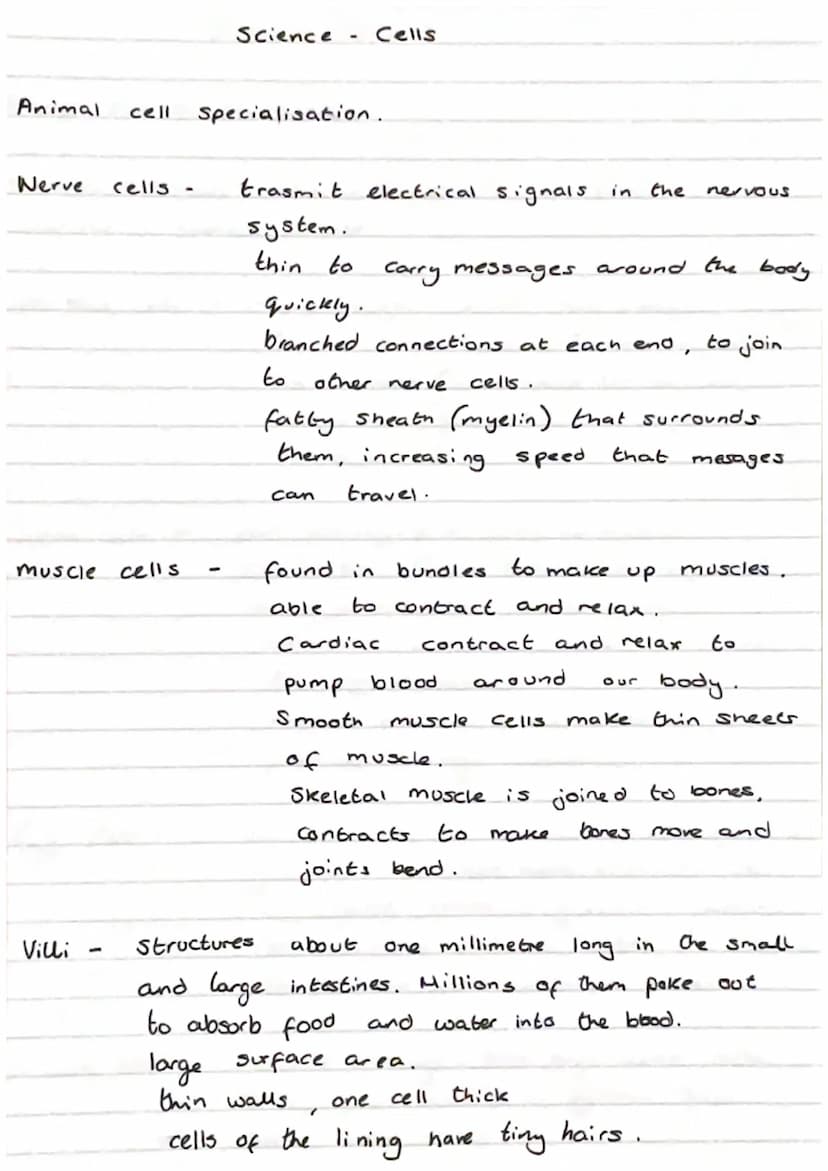 Science - Cells
Animal cell specialisation.
Nerve cells - trasmit electrical signals in the nervous
system.
thin to carry messages around the body
quickly.
branched connections at each end, to join
to other nerve cells.
fatty sheath (myelin) that surrounds
them, increasing speed that mesages
can travel.
muscle cells - found in bundles to make up muscles.
able to contract and relax.
Cardiac contract and relax to
pump blood around our body.
Smooth muscle cells make thin sheets
of muscle.
Skeletal muscle is joined to bones,
contracts to make bones move and
joints bend.
Villi - structures about one millimetre long in the small
and large intestines. Millions of them poke out
to absorb food and water into the blood.
large surface area.
thin walls, one cell thick
cells of the lining have tiny hairs.